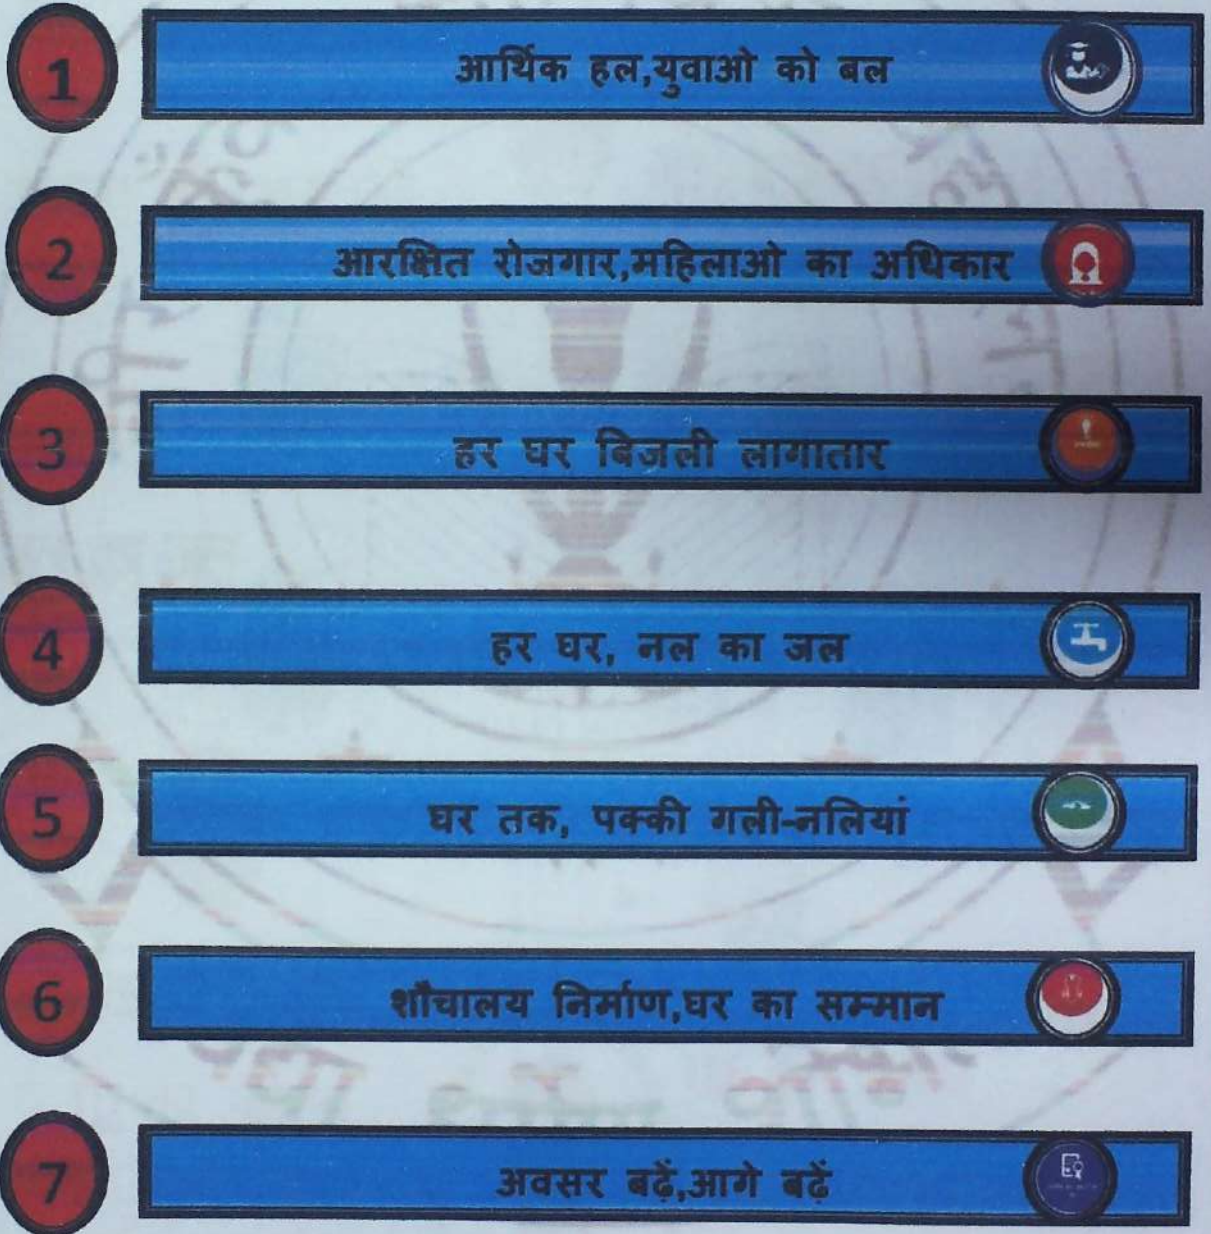 1
आर्थिक हल,युवाओ को बल
2
आरक्षित रोजगार,महिलाओ का अधिकार
3
हर घर बिजली लागातार
4
हर घर, नल का जल
5
घर तक, पक्की गली-नलियां
6
शौचालय निर्माण,घर का सम्मान
7
अवसर बढ़ें,आगे बढ़ें